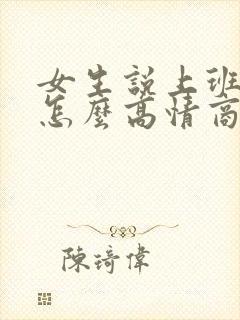 女生說上班
怎麼高情商
陳琦偉